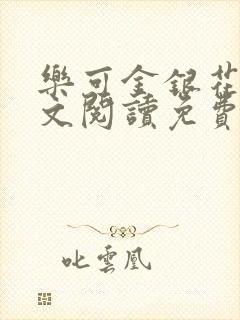 樂可金銀花
文閱讀免費
叱雲凰